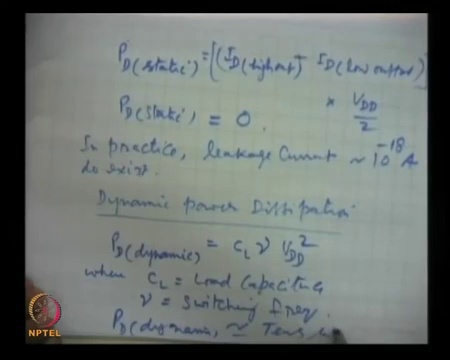 P_D(static) = [(I_D(high out) + I_D(low output)]
× V_DD/2
P_D(static) = 0.
In practice, leakage current ~ 10^-18 A
do exist.
Dynamic power Dissipation
P_D(dynamic) = C_L ν V_DD^2
where C_L = Load Capacitance
ν = switching freq.
P_D(dynamic) ≃ Tens
NPTEL